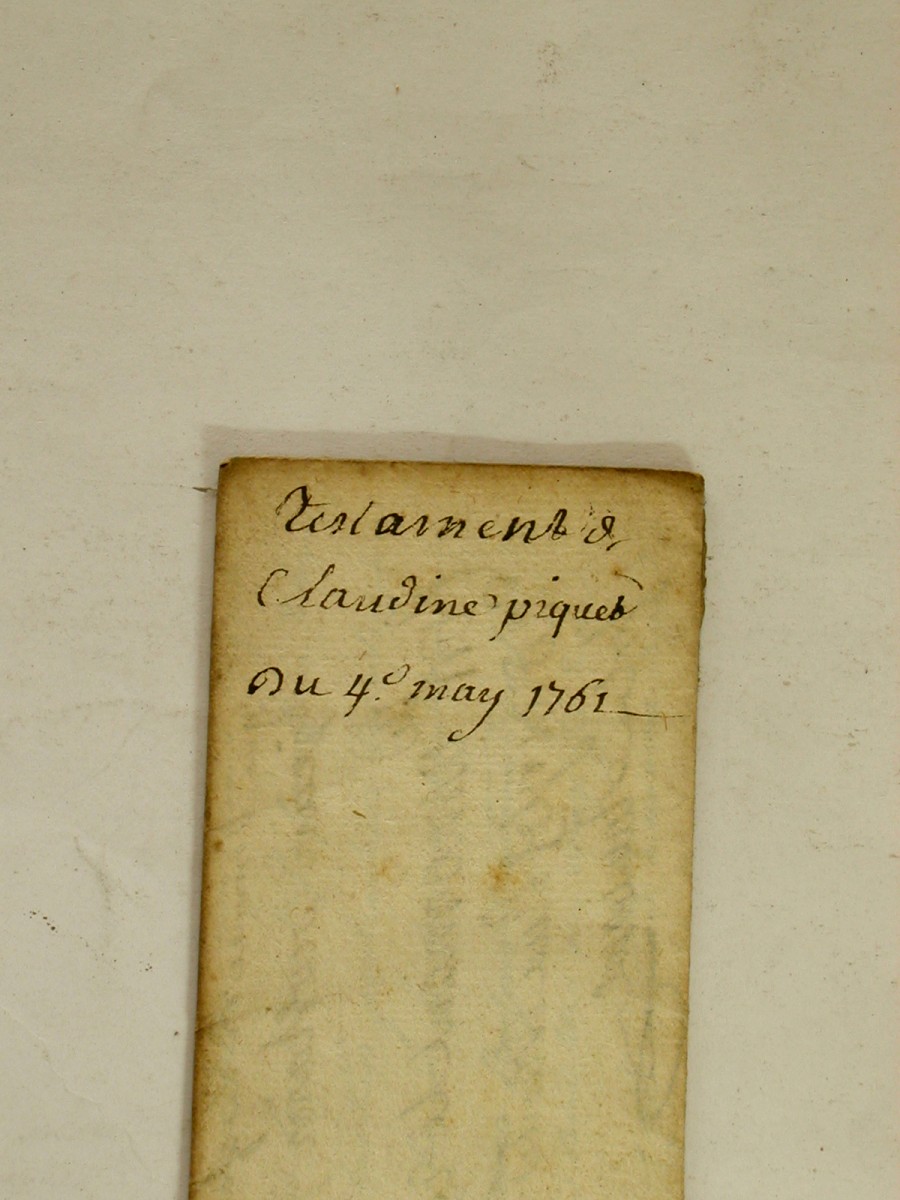 Testament de
Claudine piquet
Du 4.e may 1761